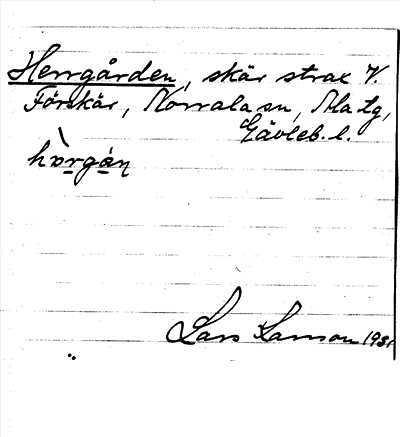 Herrgården, skär strax V.
Förskär, Norrala sn, Ala tg,
Gävleb. l.
hòrgán
Lars Larsson 1931